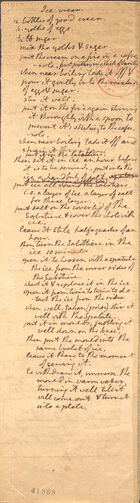 Ice cream.
2 bottles of good cream.
6 yolks of eggs.
1/2 lb sugar
mix the yolks & sugar
put the cream on a fire in a casse-
role, first putting in a stick of Vanilla.
when near boiling take it off &
pour it gently into the mixture
of eggs & sugar.
stir it well.
put it on the fire again stirring
it thoroughly with a spoon to
prevent it's sticking to the casse-
role.
when near boiling take it off and
strain it thro' a towel.
put it in the Sabottiere
then set it in ice an hour before
it is to be served. put into the
ice a handful of salt.
put ice all around the Sabottiere
i.e. a layer of ice a layer of salt
for three layers.
put salt on the coverlid of the
Sabottiere & cover the whole with
ice.
leave it still half a quarter of an
hour.
then turn the Sabottiere in the
ice 10 minutes
open it to loosen with a spatula
the ice from the inner sides of
the Sabotiere.
shut it & replace it in the ice
open it from time to time to de-
tach the ice from the sides
when well taken (prise) stir it
well with the Spatula.
put it in moulds, justling it
well down on the knee.
then put the mould into the
same bucket of ice.
leave it there to the moment
of serving it.
to withdraw it, immerse the
mould in warm water,
turning it well till it
will come out & turn it
into a plate.
41868